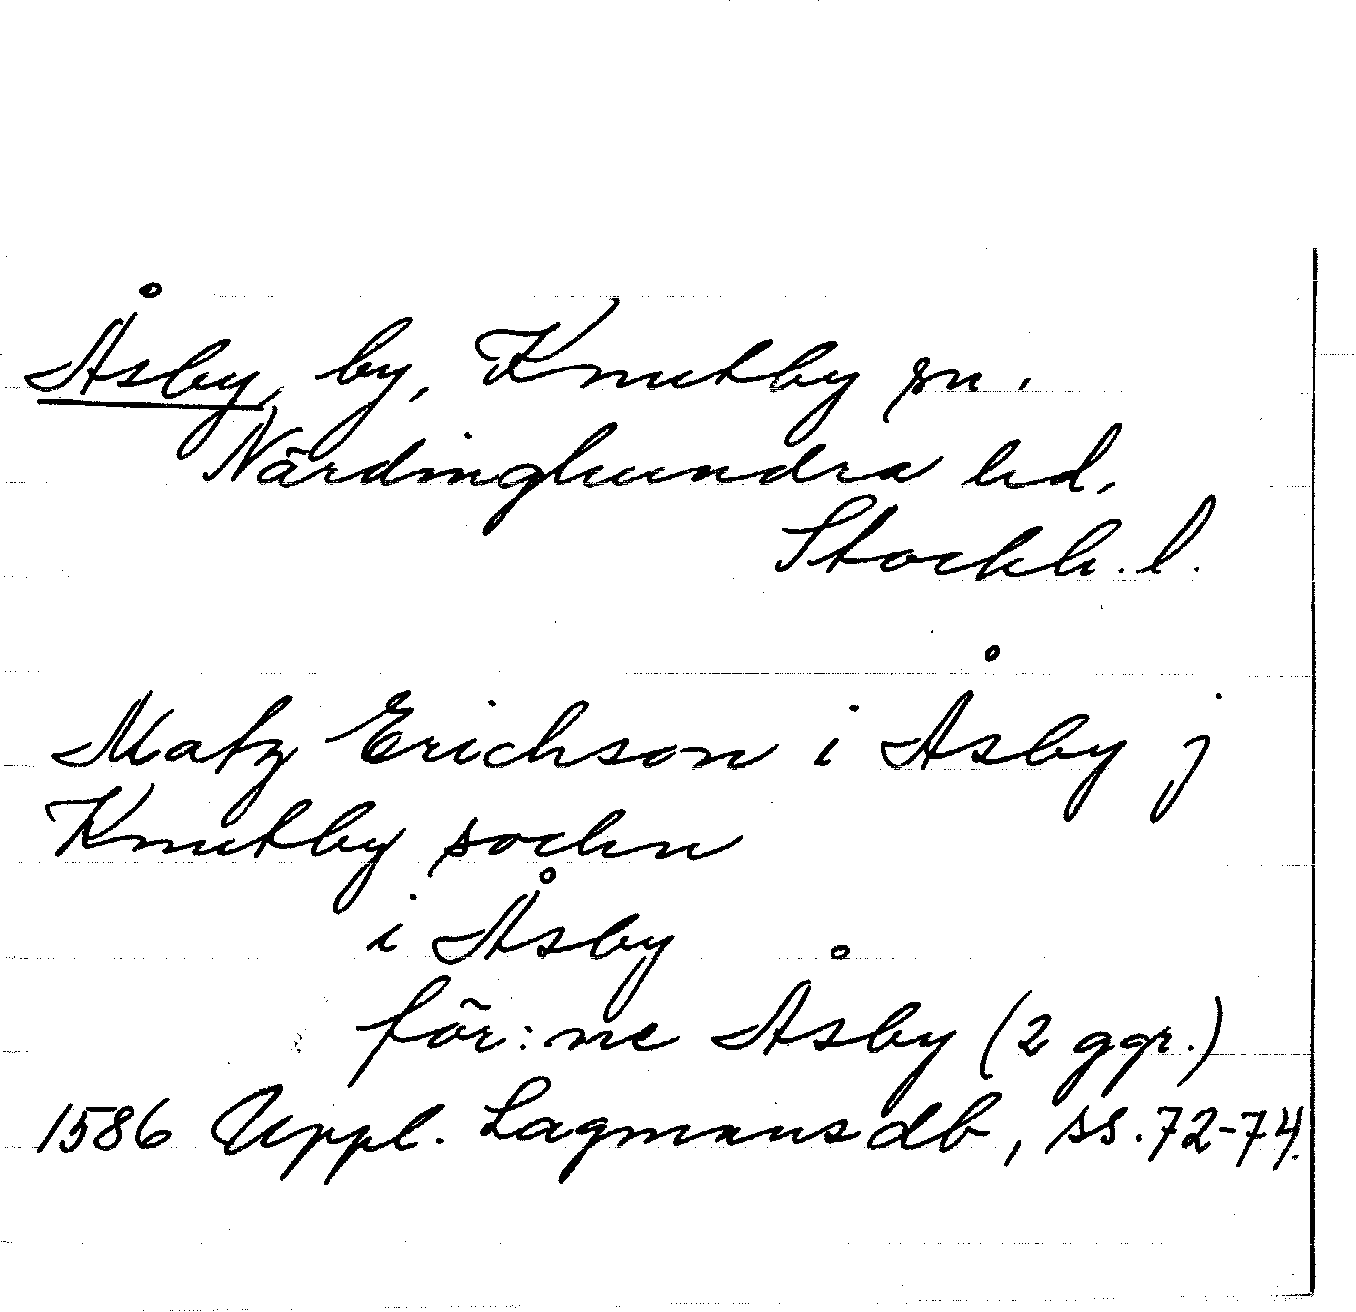 Åsby, by, Knutby sn.
Närdinghundra hd,
Stockh. l.
Matz Erichson i Åsby j
Knutby sochn
i Åsby
för:ne Åsby (2 ggr.)
1586 Uppl. Lagmansdb, ss. 72-74.